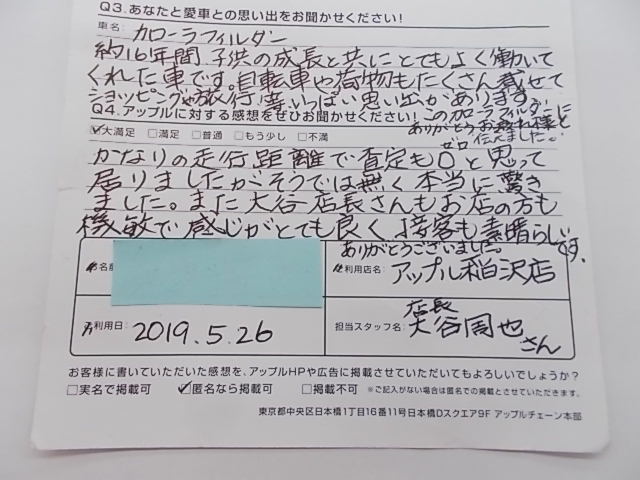 Q3.あなたと愛車との思い出をお聞かせください!
車名: カローラフィルダー
約16年間子供の成長と共にとてもよく働いて
くれた車です。自転車や荷物もたくさん載せて
ショッピングや旅行等いっぱい思い出があります。
このカローラフィルダーに
ありがとうお疲れ様と
伝えました。
Q4.アップルに対する感想をぜひお聞かせください!
☑大満足 □満足 □普通 □もう少し □不満
かなりの走行距離で査定も0と思って
ゼロ
居りましたがそうでは無く本当に驚き
ました。また大谷店長さんもお店の方も
機敏で感じがとても良く接客も素晴らしいです。
ありがとうございました。
お名前
ご利用店名: アップル稲沢店
ご利用日: 2019.5.26
担当スタッフ名: 店長 大谷周也さん
お客様に書いていただいた感想を、アップルHPや広告に掲載させていただいてもよろしいでしょうか?
□実名で掲載可 ☑匿名なら掲載可 □掲載不可 ※ご記入がない場合は匿名での掲載とさせていただきます。
東京都中央区日本橋1丁目16番11号日本橋Dスクエア9F アップルチェーン本部